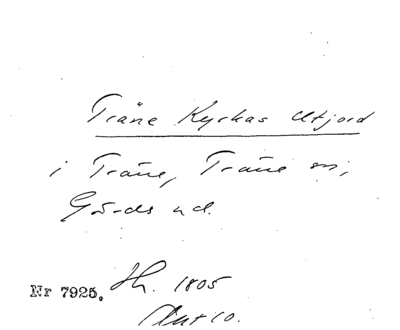 Träne Kyrkas Utjord
i Träne, Träne sn,
Gärds hd.
Nr 7925. Hh. 1805
Akt 10.